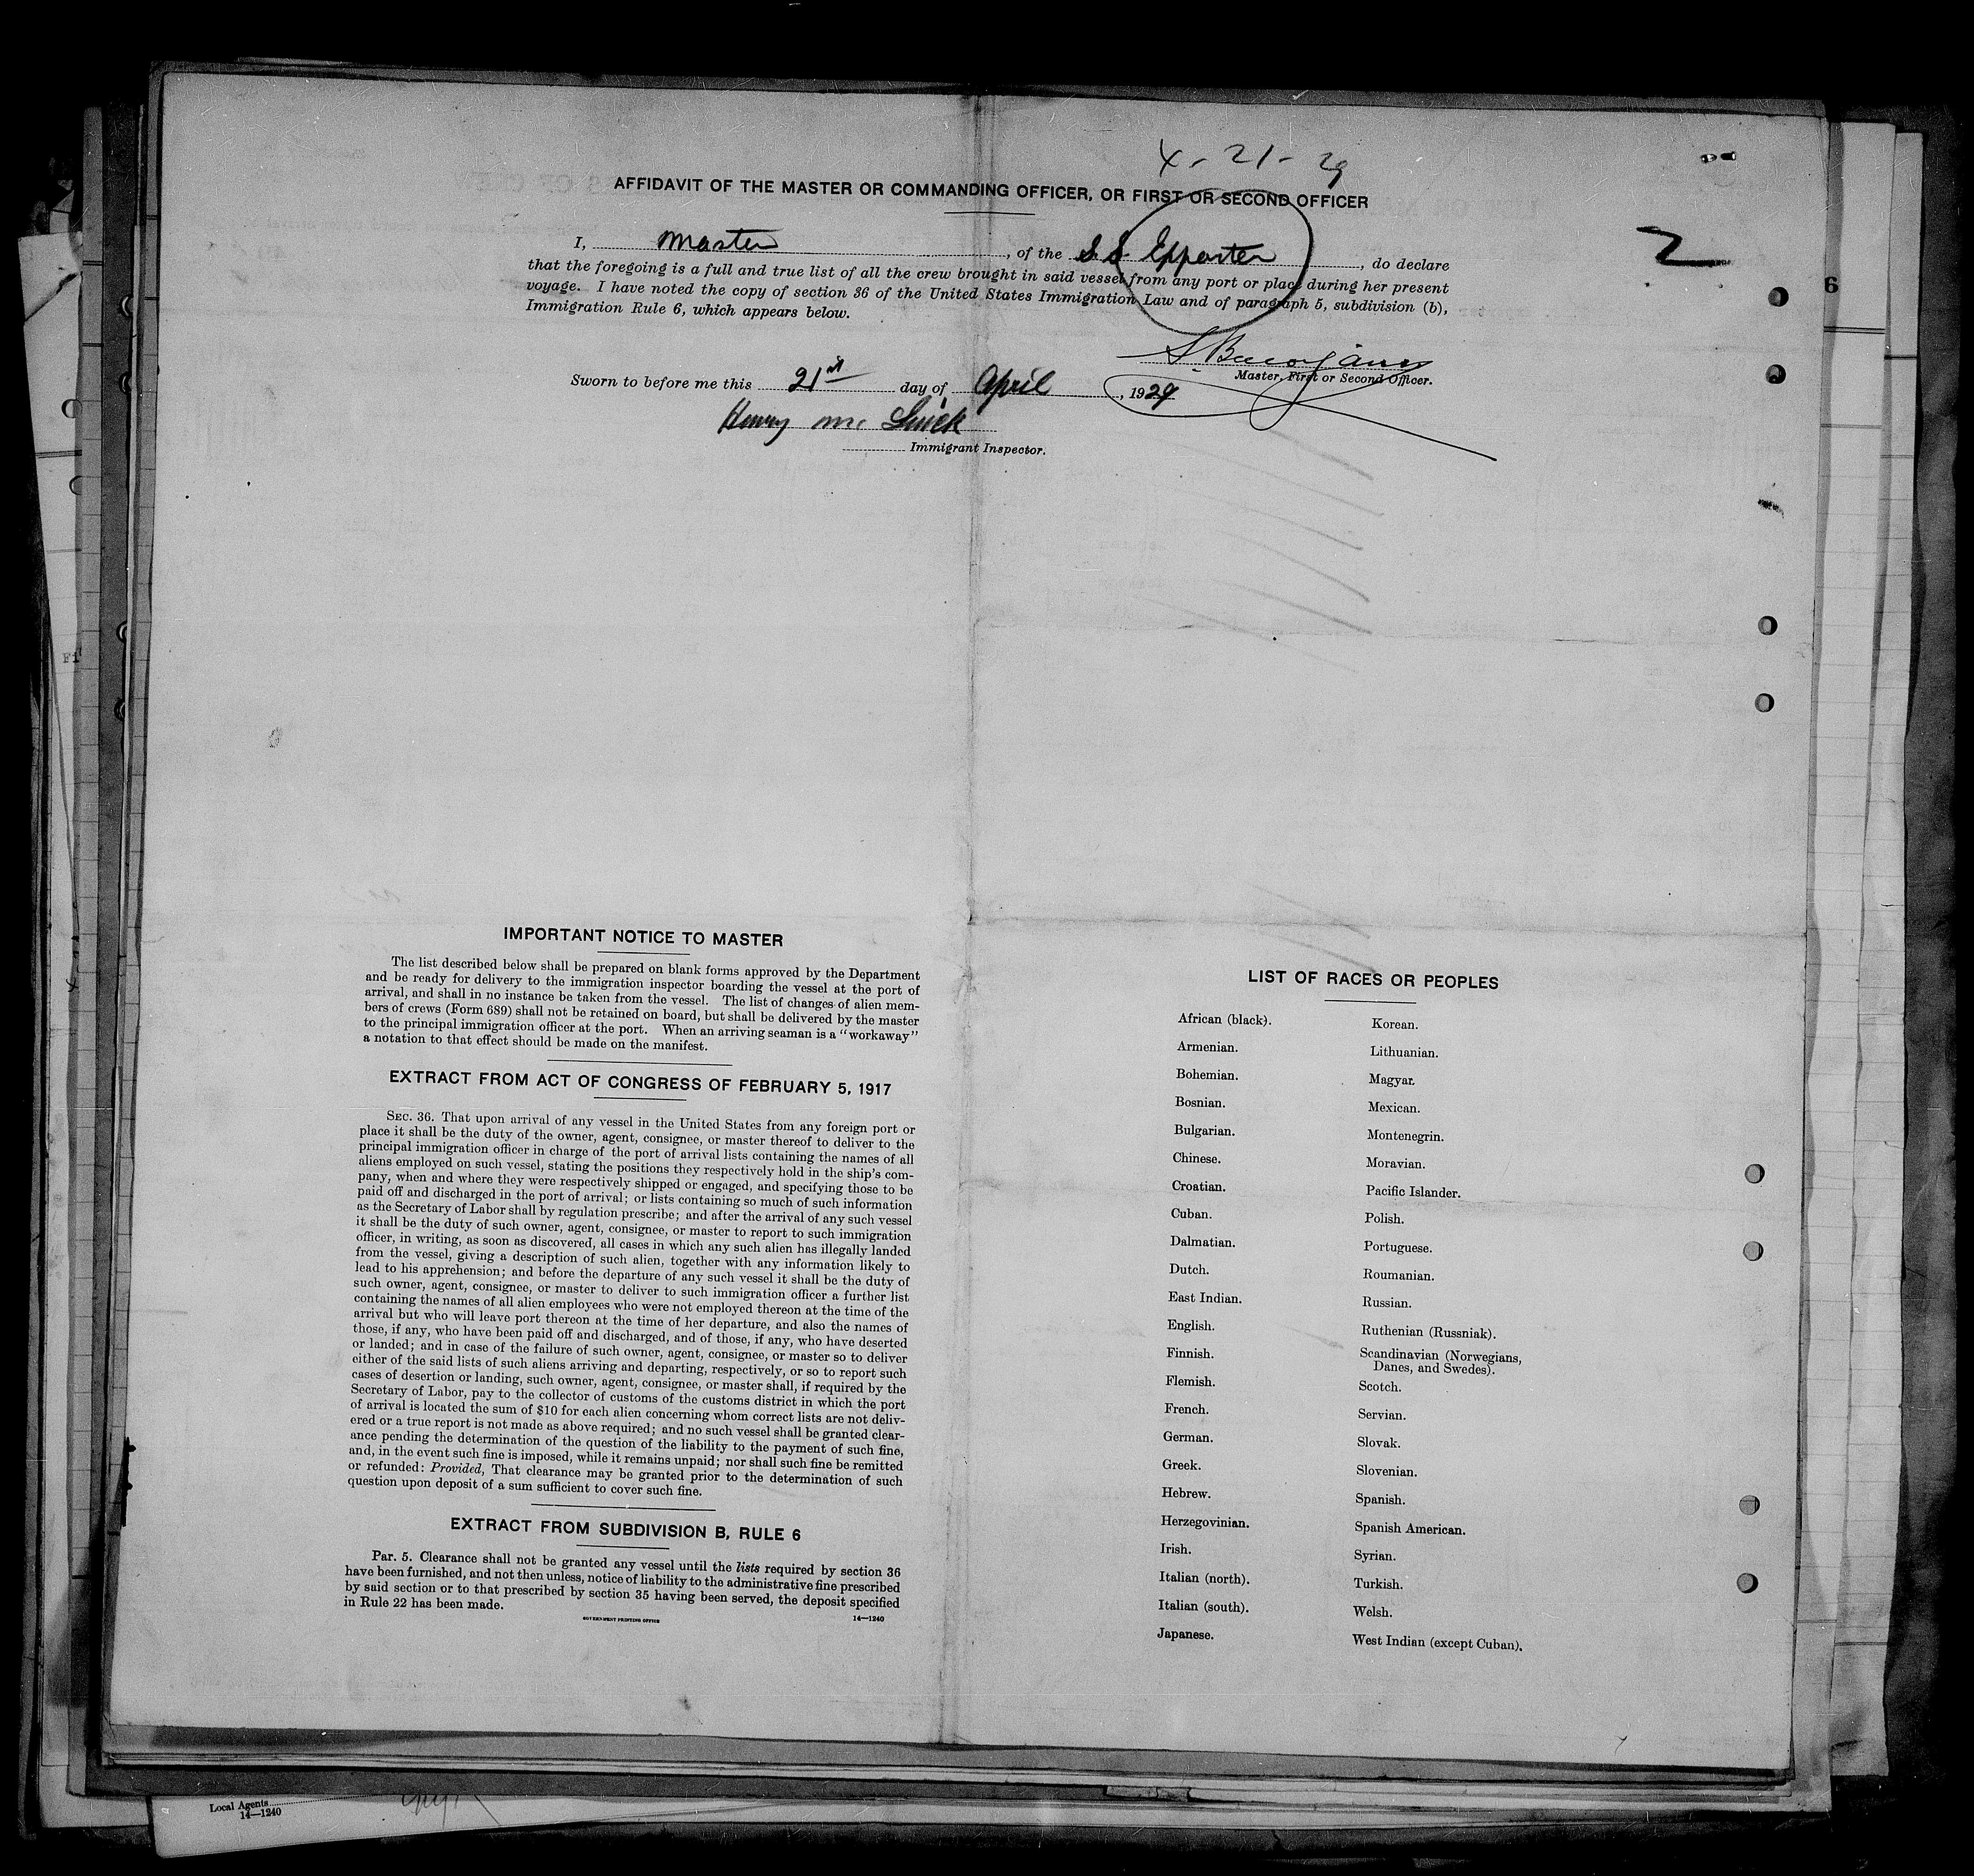 4-21-29
AFFIDAVIT OF THE MASTER OR COMMANDING OFFICER, OR FIRST OR SECOND OFFICER
I, Master, of the S.S. Exporter, do declare
that the foregoing is a full and true list of all the crew brought in said vessel from any port or place during her present
voyage. I have noted the copy of section 36 of the United States Immigration Law and of paragraph 5, subdivision (b),
Immigration Rule 6, which appears below.
2
6
Master, First or Second Officer.
Sworn to before me this 21st day of April, 1929
Henry Mc
Immigrant Inspector.
Fi
IMPORTANT NOTICE TO MASTER
The list described below shall be prepared on blank forms approved by the Department
and be ready for delivery to the immigration inspector boarding the vessel at the port of
arrival, and shall in no instance be taken from the vessel. The list of changes of alien mem-
bers of crews (Form 689) shall not be retained on board, but shall be delivered by the master
to the principal immigration officer at the port. When an arriving seaman is a "workaway"
a notation to that effect should be made on the manifest.
EXTRACT FROM ACT OF CONGRESS OF FEBRUARY 5, 1917
SEC. 36. That upon arrival of any vessel in the United States from any foreign port or
place it shall be the duty of the owner, agent, consignee, or master thereof to deliver to the
principal immigration officer in charge of the port of arrival lists containing the names of all
aliens employed on such vessel, stating the positions they respectively hold in the ship's com-
pany, when and where they were respectively shipped or engaged, and specifying those to be
paid off and discharged in the port of arrival; or lists containing so much of such information
as the Secretary of Labor shall by regulation prescribe; and after the arrival of any such vessel
it shall be the duty of such owner, agent, consignee, or master to report to such immigration
officer, in writing, as soon as discovered, all cases in which any such alien has illegally landed
from the vessel, giving a description of such alien, together with any information likely to
lead to his apprehension; and before the departure of any such vessel it shall be the duty of
such owner, agent, consignee, or master to deliver to such immigration officer a further list
containing the names of all alien employees who were not employed thereon at the time of the
arrival but who will leave port thereon at the time of her departure, and also the names of
those, if any, who have been paid off and discharged, and of those, if any, who have deserted
or landed; and in case of the failure of such owner, agent, consignee, or master so to deliver
either of the said lists of such aliens arriving and departing, respectively, or so to report such
cases of desertion or landing, such owner, agent, consignee, or master shall, if required by the
Secretary of Labor, pay to the collector of customs of the customs district in which the port
of arrival is located the sum of $10 for each alien concerning whom correct lists are not deliv-
ered or a true report is not made as above required; and no such vessel shall be granted clear-
ance pending the determination of the question of the liability to the payment of such fine,
and, in the event such fine is imposed, while it remains unpaid; nor shall such fine be remitted
or refunded: Provided, That clearance may be granted prior to the determination of such
question upon deposit of a sum sufficient to cover such fine.
EXTRACT FROM SUBDIVISION B, RULE 6
Par. 5. Clearance shall not be granted any vessel until the lists required by section 36
have been furnished, and not then unless, notice of liability to the administrative fine prescribed
by said section or to that prescribed by section 35 having been served, the deposit specified
in Rule 22 has been made.
GOVERNMENT PRINTING OFFICE 14—1240
LIST OF RACES OR PEOPLES
African (black).
Armenian.
Bohemian.
Bosnian.
Bulgarian.
Chinese.
Croatian.
Cuban.
Dalmatian.
Dutch.
East Indian.
English.
Finnish.
Flemish.
French.
German.
Greek.
Hebrew.
Herzegovinian.
Irish.
Italian (north).
Italian (south).
Japanese.
Korean.
Lithuanian.
Magyar.
Mexican.
Montenegrin.
Moravian.
Pacific Islander.
Polish.
Portuguese.
Roumanian.
Russian.
Ruthenian (Russniak).
Scandinavian (Norwegians,
Danes, and Swedes).
Scotch.
Servian.
Slovak.
Slovenian.
Spanish.
Spanish American.
Syrian.
Turkish.
Welsh.
West Indian (except Cuban).
Local Agents
14—1240